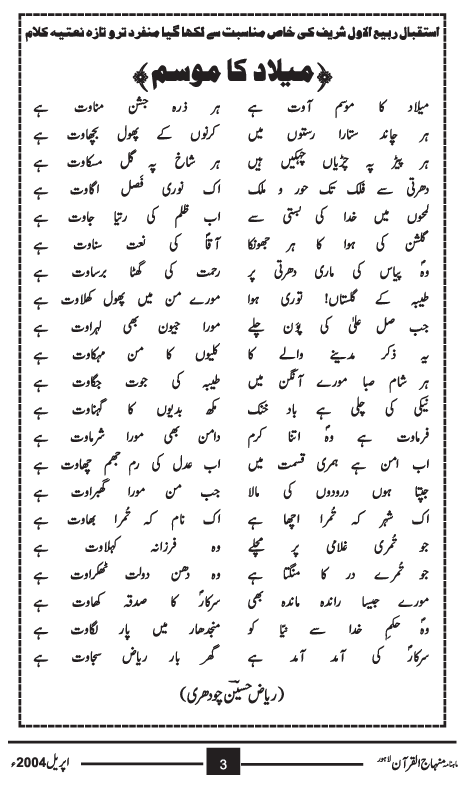 استقبال ربیع الاول شریف کی خاص مناسبت سے لکھا گیا منفرد تر و تازہ نعتیہ کلام
﴿میلاد کا موسم﴾
میلاد کا موسم آوت ہے ہر ذرہ جشن مناوت ہے
ہر چاند ستارا رستوں میں کرنوں کے پھول بچھاوت ہے
ہر پیڑ پہ چڑیاں چہکیں ہیں ہر شاخ پہ گل مسکاوت ہے
دھرتی سے فلک تک حور و ملک اک نوری فصل اگاوت ہے
لمحوں میں خدا کی بستی سے اب ظلم کی رتیا جاوت ہے
گلشن کی ہوا کا ہر جھونکا آقاؐ کی نعت سناوت ہے
وہؐ پیاس کی ماری دھرتی پر رحمت کی گھٹا برساوت ہے
طیبہ کے گلستاں! توری ہوا مورے من میں پھول کھلاوت ہے
جب صل علیٰ کی پَون چلے مورا جیون بھی لہراوت ہے
یہ ذکر مدینے والے کا کلیوں کا من مہکاوت ہے
ہر شام صبا مورے آنگن میں طیبہ کی جوت جگاوت ہے
نیکی کی چلی ہے باد خنک مکھ بدیوں کا گہناوت ہے
فرماوت ہے وہؐ اتنا کرم دامن بھی مورا شرماوت ہے
اب امن ہے ہمری قسمت میں اب عدل کی رم جھم چھاوت ہے
جپتا ہوں درودوں کی مالا جب من مورا گھبراوت ہے
اک شہر کہ تُمرا اچھا ہے اک نام کہ تُمرا بھاوت ہے
جو تُمری غلامی پر مچلے وہ فرزانہ کہلاوت ہے
جو تُمرے در کا منگتا ہے وہ دھن دولت ٹھکراوت ہے
مورے جیسا راندہ ماندہ بھی سرکارؐ کا صدقہ کھاوت ہے
وہؐ حکمِ خدا سے نیّا کو منجدھار میں پار لگاوت ہے
سرکارؐ کی آمد آمد ہے گھر بار ریاض سجاوت ہے
(ریاض حسین چودھری)
ماہنامہ منہاج القرآن لاہور 3 اپریل 2004ء